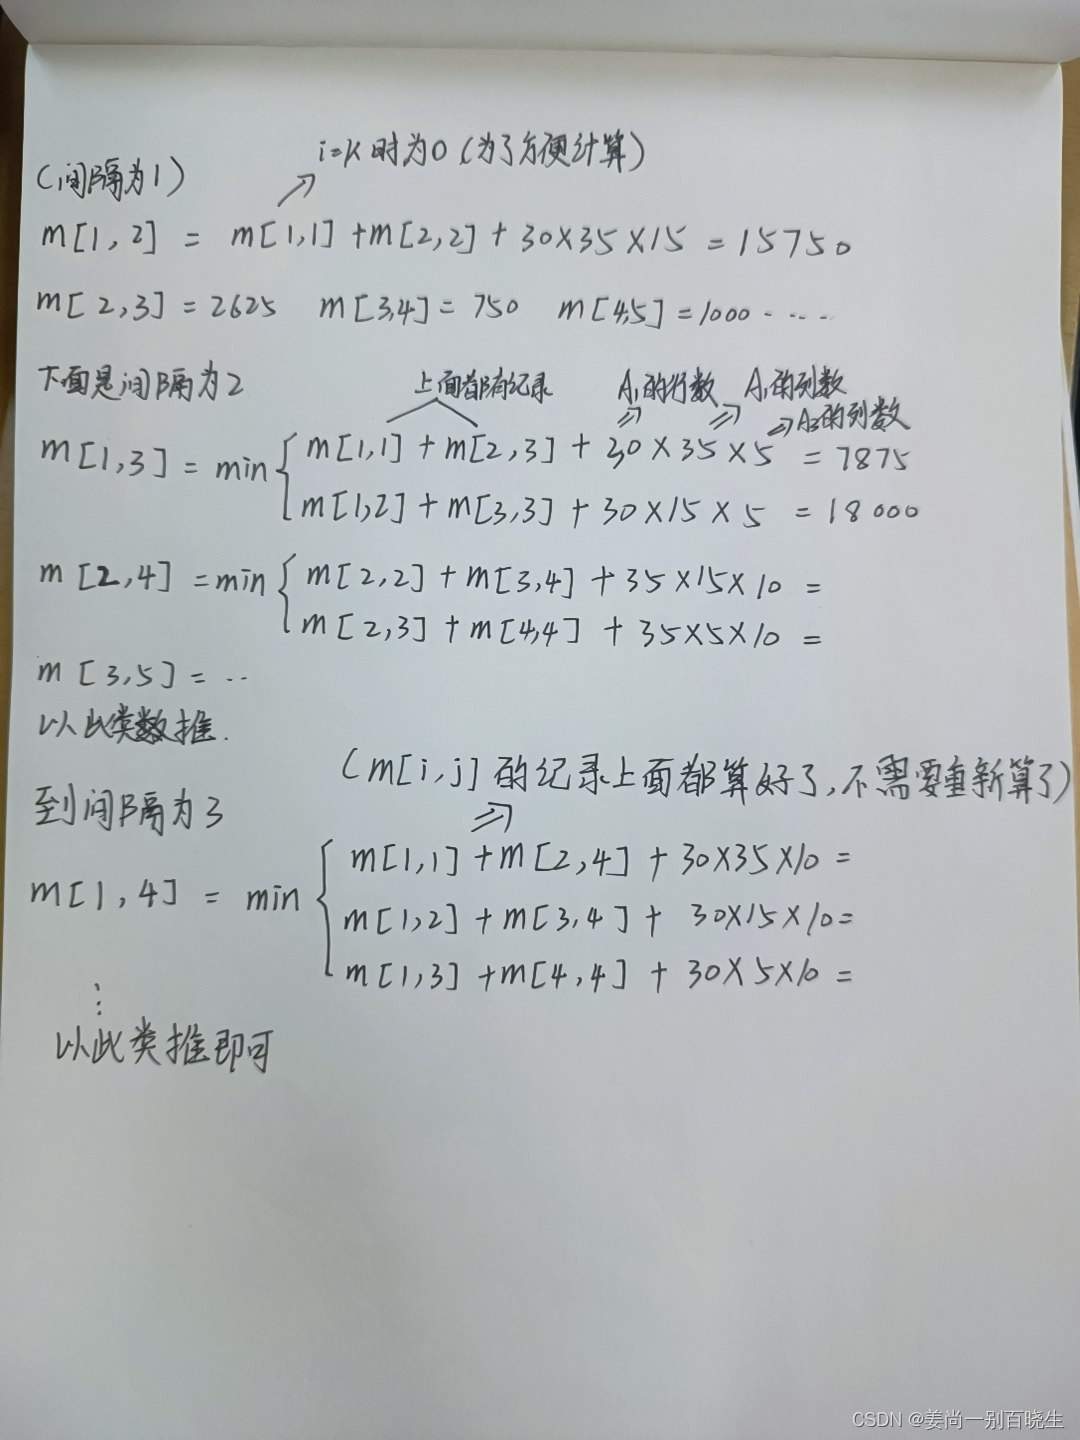 i=k时为0(为了方便计算)
(间隔为1)
m[1,2] = m[1,1]+m[2,2]+30×35×15=15750
m[2,3]=2625 m[3,4]=750 m[4,5]=1000.....
下面是间隔为2
上面都有纪录 A₁的行数 A₁的列数
A₃的列数
m[1,3] = min{ m[1,1]+m[2,3]+30×35×5=7875
m[1,2]+m[3,3]+30×15×5=18000
m[2,4]=min{ m[2,2]+m[3,4]+35×15×10=
m[2,3]+m[4,4]+35×5×10=
m[3,5]=..
以此类数推.
(m[i,j]的纪录上面都算好了,不需要重新算了)
到间隔为3
m[1,4] = min{ m[1,1]+m[2,4]+30×35×10=
m[1,2]+m[3,4]+30×15×10=
m[1,3]+m[4,4]+30×5×10=
⋮
以此类推即可
CSDN @姜尚一别百晓生